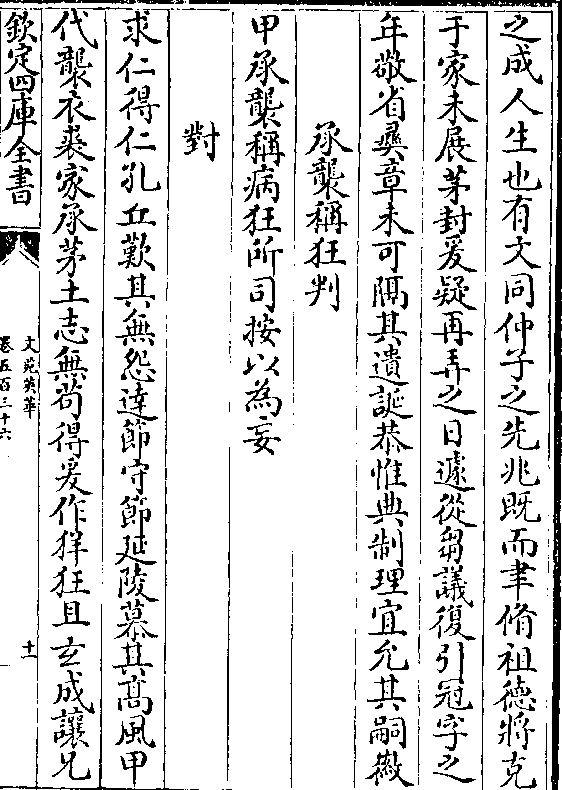 之成人生也有文同仲子之先兆既而聿脩祖德將克
于家未展茅封爰疑再弄之日遽從芻議復引冠字之
年敬省彛章未可隔其遺誕恭惟典制理宜允其嗣徽
承襲稱狂判
甲承襲稱病狂所司按以為妄
對
求仁得仁孔丘歎其無怨達節守節延陵慕其高風甲
代襲衣裘家承茅土志無苟得爰作佯狂且玄成讓兄
欽定四庫全書
文苑英華
卷五百三十六
十一